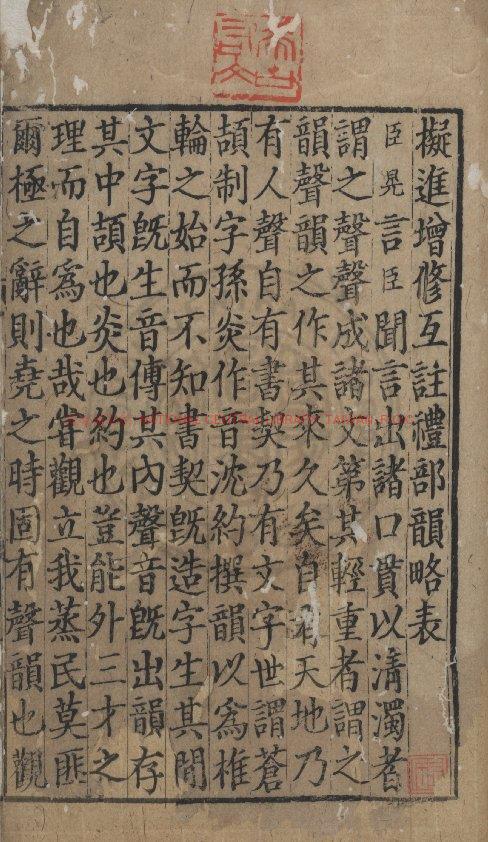 擬進增修互註禮部韻略表
臣晃言臣聞言出諸口質以清濁者
謂之聲聲成諸文第其輕重者謂之
韻聲韻之作其來久矣自有天地乃
有人聲自有書契乃有文字世謂蒼
頡制字孫炎作音沈約撰韻以為椎
輪之始而不知書契旣造字生其間
文字旣生音傳其內聲音旣出韻存
其中頡也炎也約也豈能外三才之
理而自為也哉甞觀立我蒸民莫匪
爾極之辭則堯之時固有聲韻也觀
NATIONAL CENTRAL LIBRARY, TAIWAN, R.O.C.